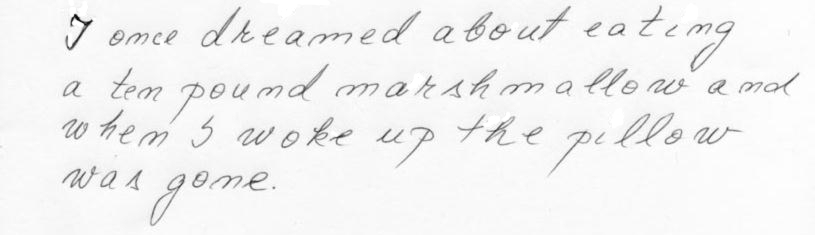 I once dreamed about eating
a ten pound marshmallow and
when I woke up the pillow
was gone.